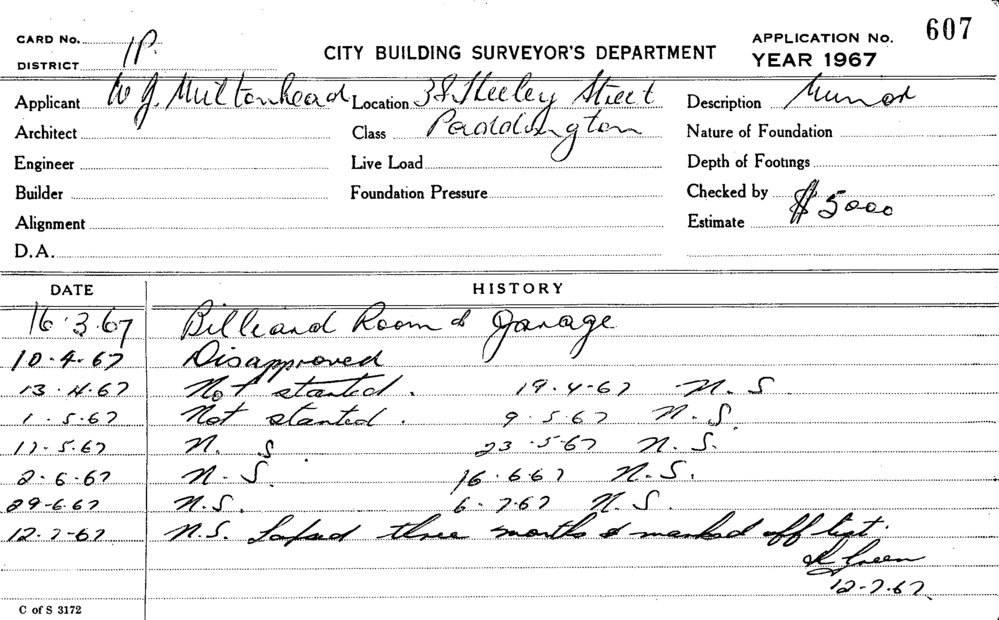 CARD No. 1P. CITY BUILDING SURVEYOR'S DEPARTMENT APPLICATION No. 607
DISTRICT YEAR 1967
Applicant W J. Multonhead Location 38 Heeley Street Description Minor
Architect Class Paddington Nature of Foundation
Engineer Live Load Depth of Footings
Builder Foundation Pressure Checked by
Alignment Estimate $ 5000
D.A.
DATE HISTORY
16.3.67 Billiard Room & Garage
10.4.67 Disapproved
13.4.67 Not started. 19.4.67 N.S
1.5.67 Not started. 9.5.67 N.S.
17.5.67 N.S. 23.5.67 N.S.
2.6.67 N.S. 16.6.67 N.S.
29.6.67 N.S. 6.7.67 N.S.
12.7.67 N.S. Lapsed three months & marked off list.
Green
12.7.67.
C of S 3172